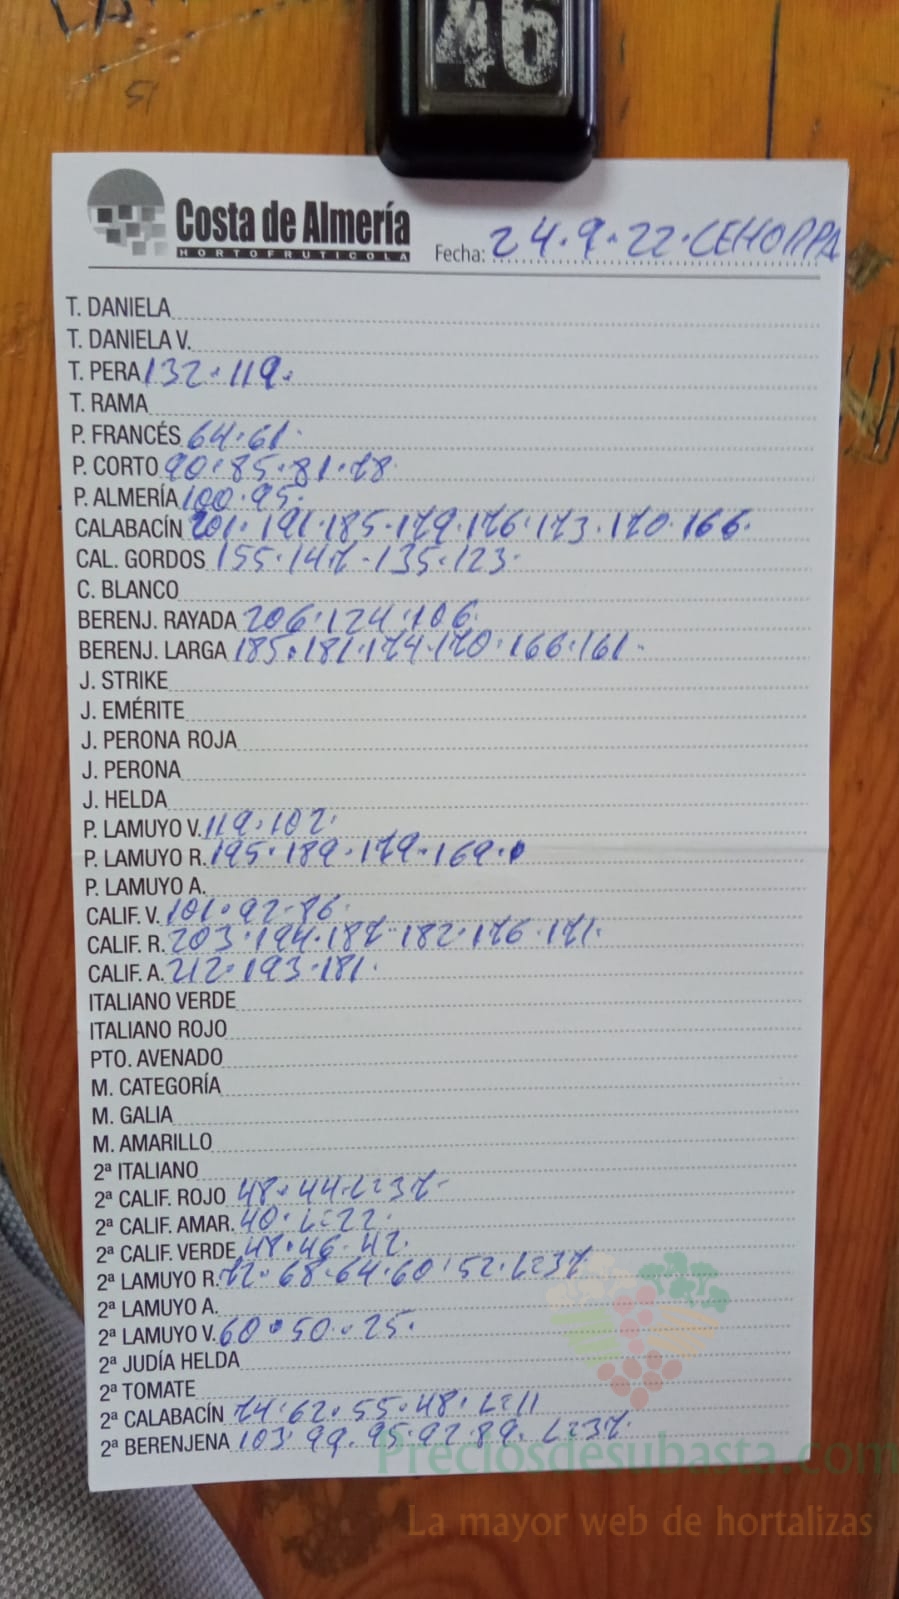 46
51
Costa de Almería
HORTOFRUTICOLA
Fecha: 24.9.22.CEHORPA
T. DANIELA
T. DANIELA V.
T. PERA 132.119.
T. RAMA
P. FRANCÉS 64.61.
P. CORTO 90.85.81.78.
P. ALMERÍA 100.95.
CALABACÍN 201.191.185.179.176.173.170.166.
CAL. GORDOS 155.147-135.123.
C. BLANCO
BERENJ. RAYADA 206.124.106.
BERENJ. LARGA 185.181.174.170.166.161.
J. STRIKE
J. EMÉRITE
J. PERONA ROJA
J. PERONA
J. HELDA
P. LAMUYO V. 119.102.
P. LAMUYO R. 195.189.179.169.
P. LAMUYO A.
CALIF. V. 101.92.86.
CALIF. R. 203.194.187.182.176.171.
CALIF. A. 212.193.181.
ITALIANO VERDE
ITALIANO ROJO
PTO. AVENADO
M. CATEGORÍA
M. GALIA
M. AMARILLO
2ª ITALIANO
2ª CALIF. ROJO 48.44.L=37-
2ª CALIF. AMAR. 40.L=22.
2ª CALIF. VERDE 48.46.42.
2ª LAMUYO R. 72.68.64.60.52.L=37
2ª LAMUYO A.
2ª LAMUYO V. 60.50.25.
2ª JUDÍA HELDA
2ª TOMATE
2ª CALABACÍN 74.62.55.48.L=11
2ª BERENJENA 103.99.95.92.89.L=37.
Preciosdesubasta.com
La mayor web de hortalizas